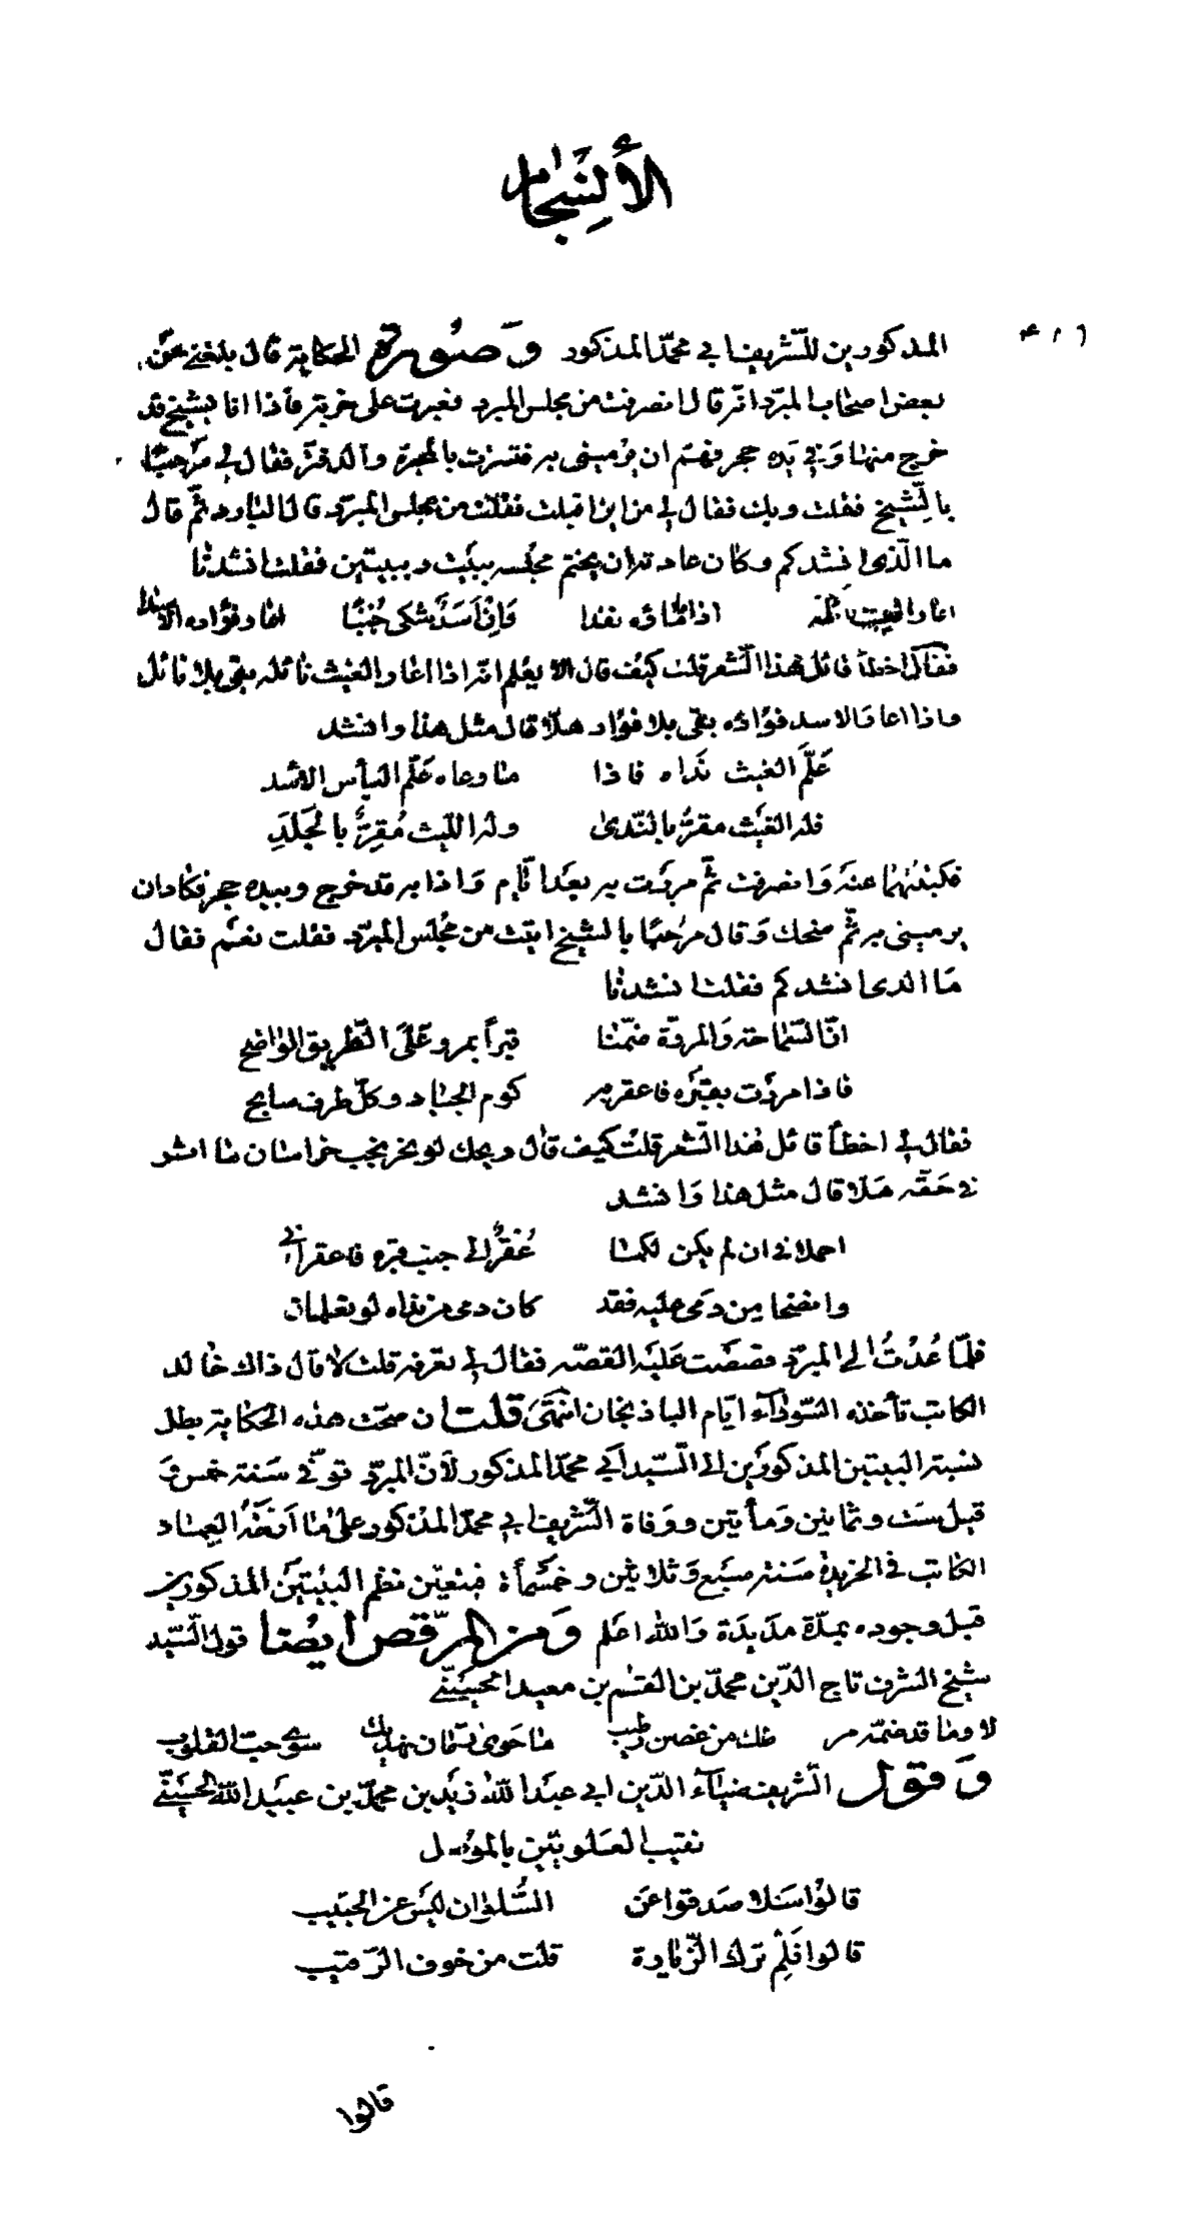 الأنسجام
٤١٦
المذكورين للشريف ابي محمد المذكور وصورة الحكاية قال بلغني عن
بعض اصحاب المبرد انه قال انصرفت من مجلس المبرد فعبرت على خربة فاذا انا بشيخ قد
خرج منها وفي يده حجر فهمّ ان يرميني به فتسترت بالمحبرة والدفتر فقال لي مرحبًا
بالشيخ فقلت وبك فقال لي من اين اقبلت فقلت من مجلس المبرد قال البارد ثم قال
ما الذي انشدكم وكان عادته ان يختم مجلسه ببيت وببيتين فقلت انشدنا
اعار الغيث نائله اذا ما مآؤه نفدا وان اسد شكى جُبنًا اعار فؤاده الاسدا
فقال اخطأ قائل هذا الشعر قلت كيف قال الا يعلم انه اذا اعار الغيث نائله بقي بلا نائل
واذا اعار الاسد فؤاده بقي بلا فؤاد هلّا قال مثل هذا وانشد
علّم الغيث نداه فاذا ما وعاه علّم البأس الاسد
فله الغيث مقرّ بالندى وله الليث مُقِرٌّ بالجَلَدِ
فكتبتهما عنه وانصرفت ثم مررت به بعد ايام واذا به قد خرج وبيده حجر فكاد ان
يرميني به ثم ضحك وقال مرحبًا بالشيخ اتيت من مجلس المبرد فقلت نعم فقال
ما الذي انشدكم فقلت انشدنا
انّ السماحة والمروّة ضمّنا قبراً بمرو على الطريق الواضح
فاذا مررت بقبره فاعقر به كوم الجياد وكلّ طرف سابح
فقال لي اخطأ قائل هذا الشعر قلت كيف قال ويحك لو نحر نجب خراسان ما اثر
في حقه هلا قال مثل هذا وانشد
احملاني ان لم يكن لكما عُقرٌ الى جنب قبره فاعقراني
وانضحا من دمي عليه فقد كان دمي من نداه لو تعلمان
فلمّا عُدْتُ الى المبرد قصصت عليه القصه فقال لي تعرفه قلت لا قال ذاك خالد
الكاتب تأخذه السودآء ايام الباذنجان انتهى قلت ان صحّت هذه الحكاية بطل
نسبة البيتين المذكورين الى السيد ابي محمد المذكور لأنّ المبرد توفي سنة خمس وقيل
قيل ست وثمانين ومأتين ووفاة الشريف ابي محمد المذكور على ما ارّخه العماد
الكاتب في الخريدة سنة سبع وثلاثين وخمسمأة فيتعيّن نظم البيتين المذكورين
قبل وجوده بمدّة مديدة والله اعلم ومن المرقص ايضا قول السيّد
شيخ الشرف تاج الدين محمد بن القسم بن معيد الحسيني
لا وما قد ضمّه مر طك من غصن رطيب ما حوى رمان نهديك سوى حبّ القلوب
وقول الشريف ضيآء الدين ابي عبد الله زيد بن محمد بن عبيد الله الحسيني
نقيب العلويين بالموصل
قالوا سلا صدقوا عن السُّلوان ليس عن الحبيب
قالوا فلِمْ ترك الزّيارة قلت من خوف الرّقيب
قالوا